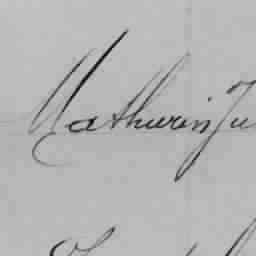 Mathurin Ju